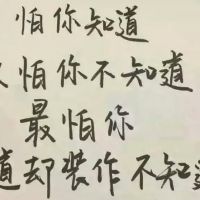 怕你知道
怕你不知道
最怕你
道却装作不知